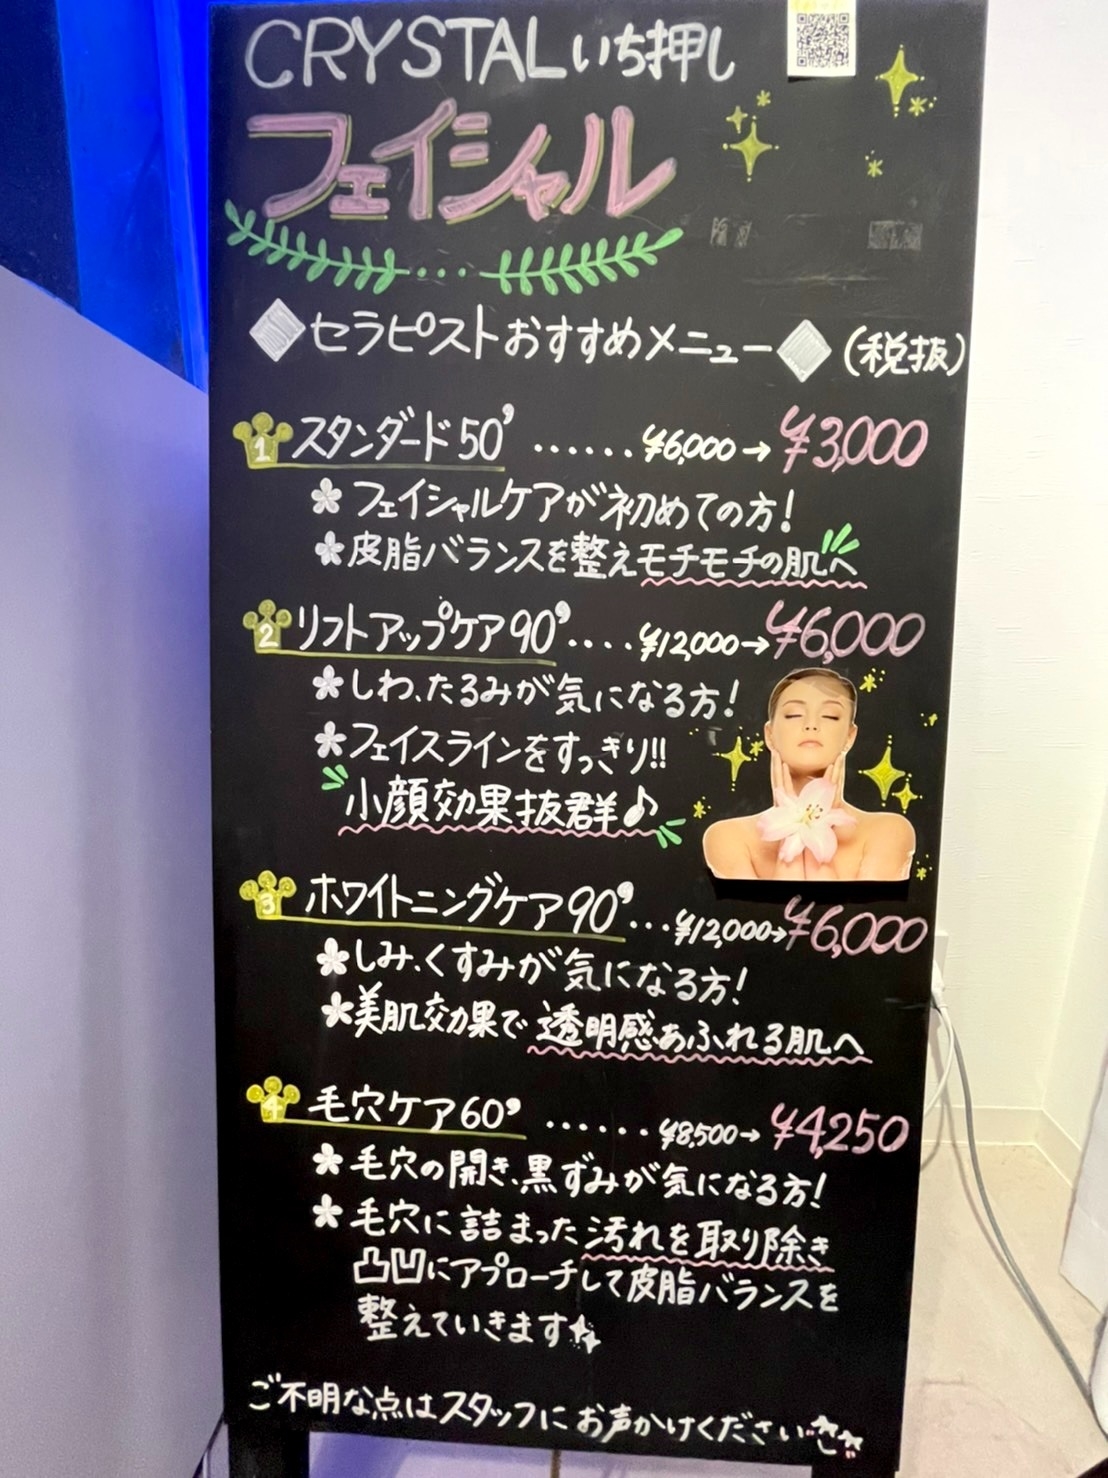 CRYSTALいち押し
フェイシャル
セラピストおすすめメニュー (税抜)
1 スタンダード50’ ...... ¥6,000→¥3,000
フェイシャルケアが初めての方!
皮脂バランスを整えモチモチの肌へ
2 リフトアップケア90’.... ¥12,000→¥6,000
しわ、たるみが気になる方!
フェイスラインをすっきり!!
小顔効果抜群♪
3 ホワイトニングケア90’... ¥12,000→¥6,000
しみ、くすみが気になる方!
美肌効果で透明感あふれる肌へ
4 毛穴ケア60’ ...... ¥8,500→¥4,250
毛穴の開き、黒ずみが気になる方!
毛穴に詰まった汚れを取り除き
凸凹にアプローチして皮脂バランスを
整えていきます
ご不明な点はスタッフにお声かけください